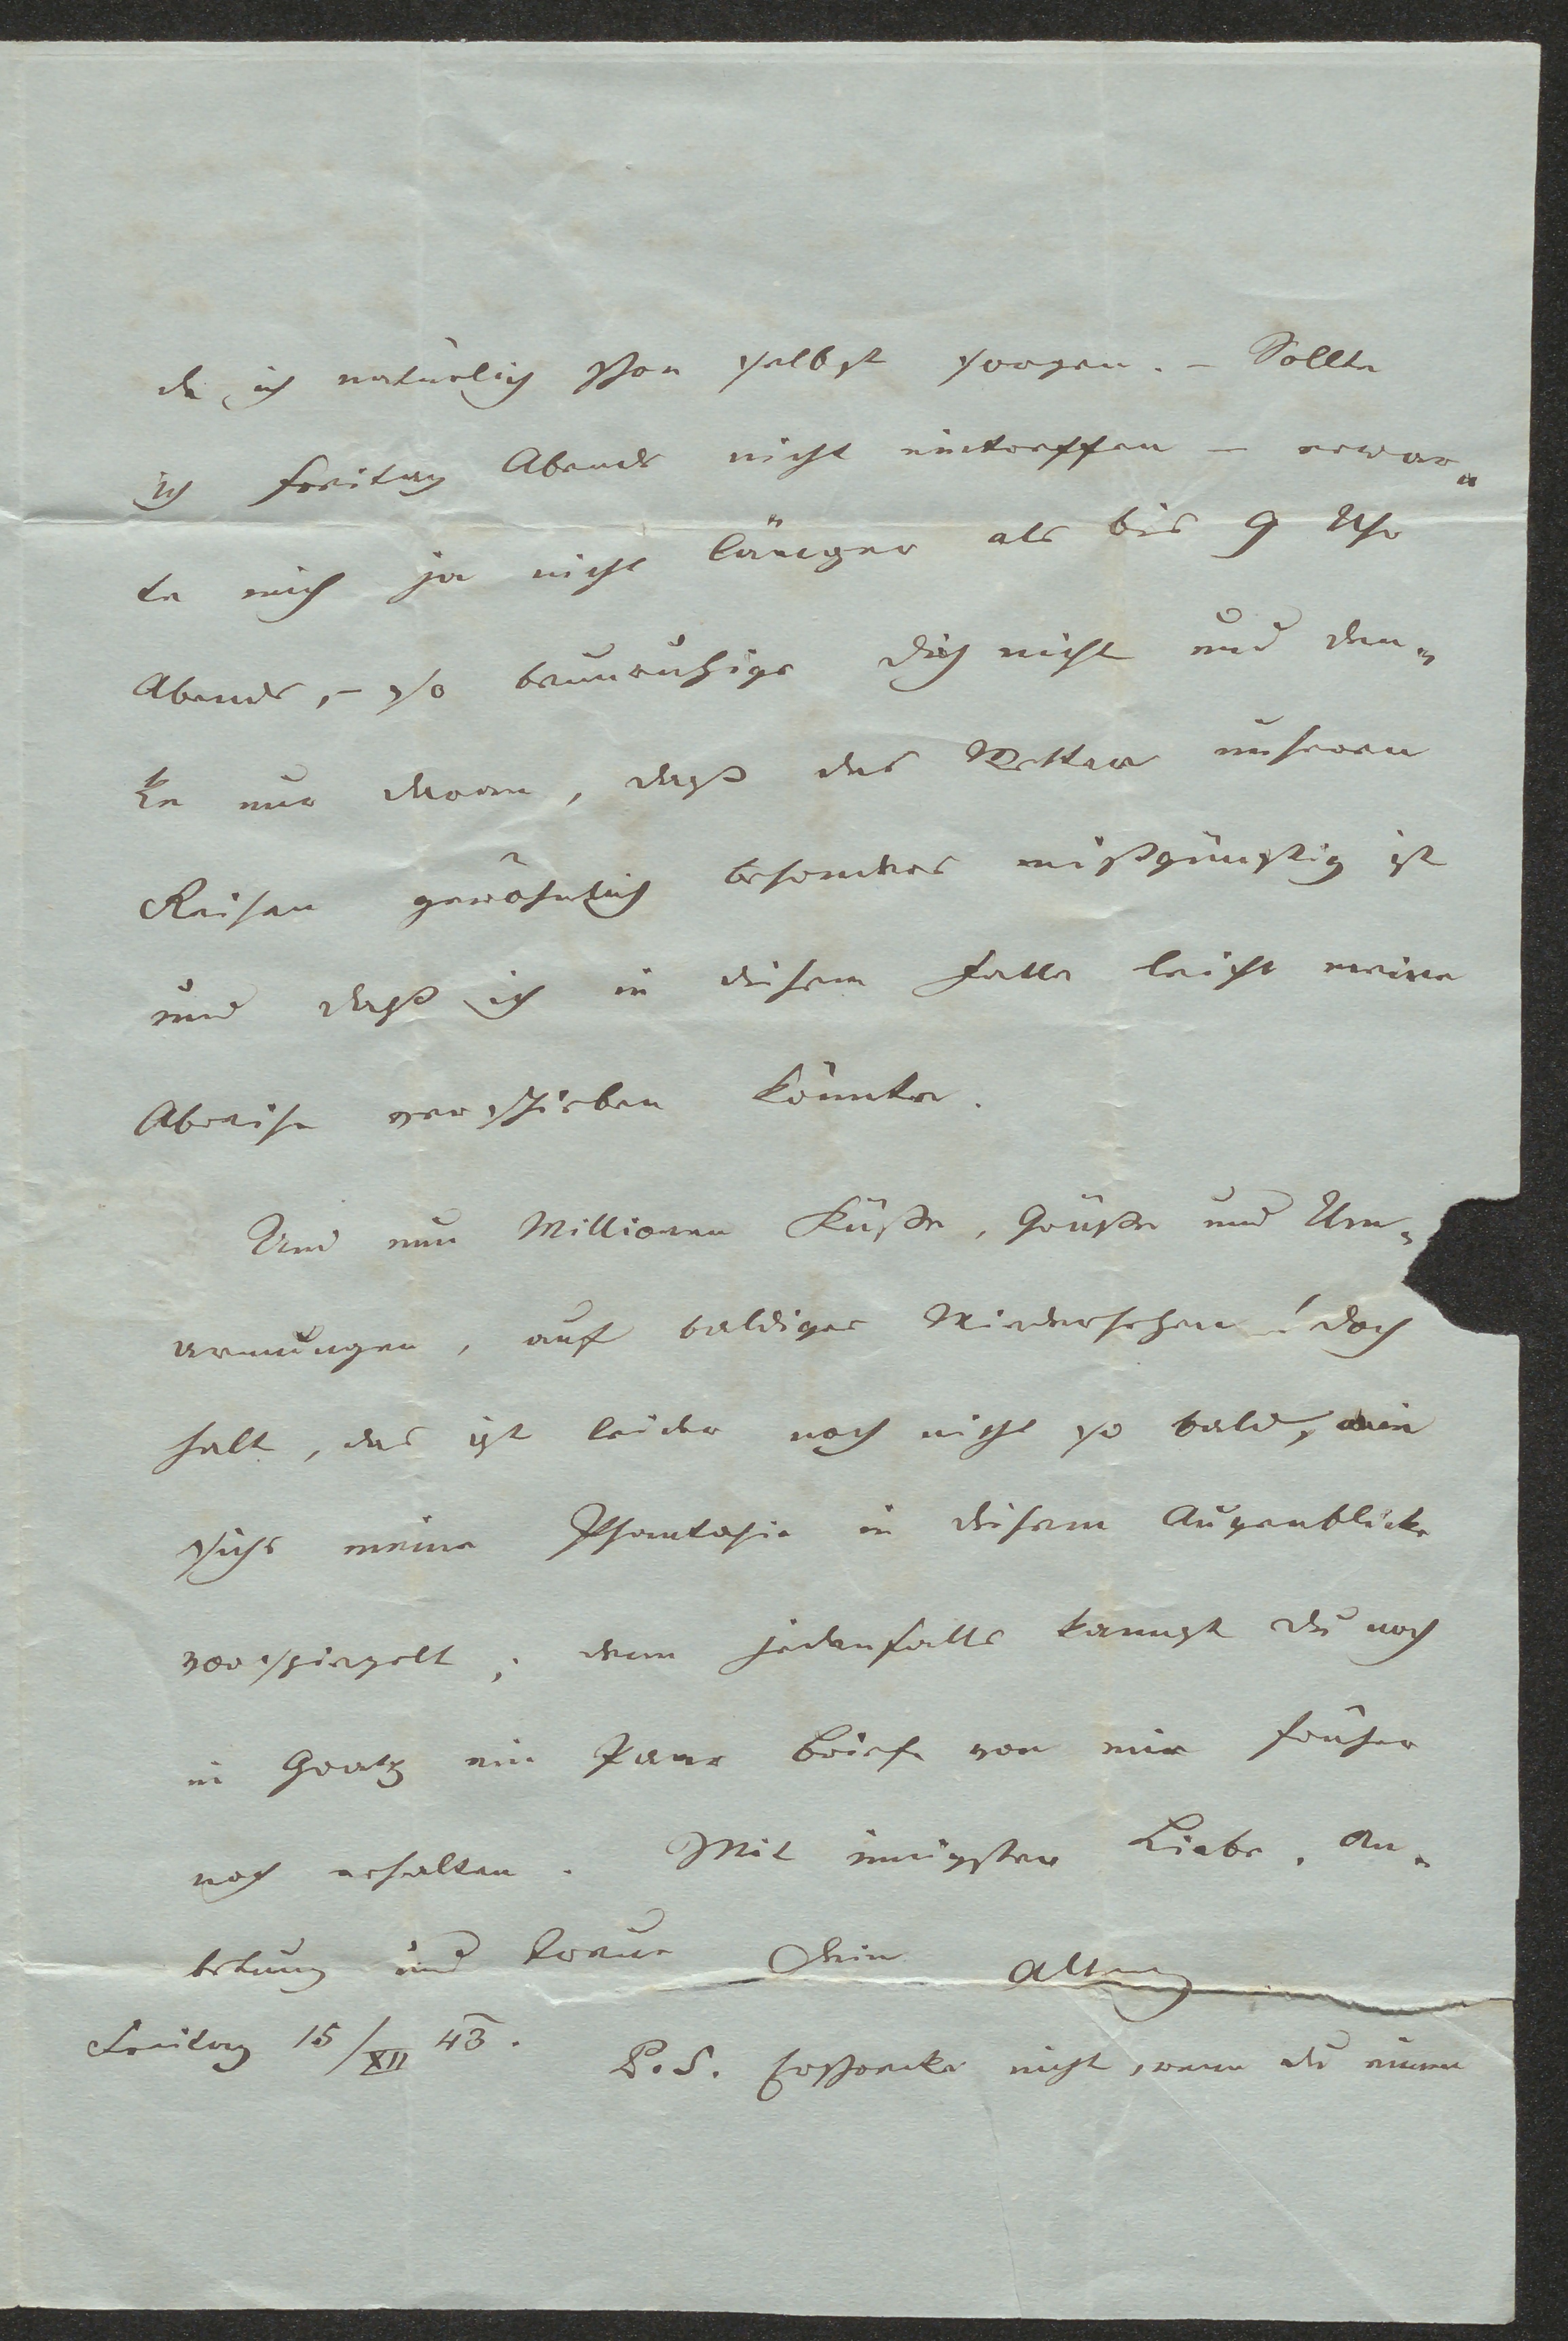 da ich natürlich schon selbst sorgen. – Sollte
ich Freitag Abends nicht eintreffen – erwar„
te mich ja nicht länger als bis 9 Uhr
Abends, – so beunruhige dich nicht und den„
ke nur daran, daß das Wetter unseren
Reisen gewöhnlich besonders mißgünstig ist
und daß ich in diesem Falle leicht meine
Abreise verschieben könnte.
Und nun Millionen Küße, Grüße und Um„
armungen, auf baldiges Wiedersehen! doch
halt, das ist leider noch nicht so bald, wie
sichs meine Phantasie in diesem Augenblicke
vorspiegelt; denn jedenfalls kannst du noch
in Gratz ein Paar Briefe von mir früher
noch erhalten. Mit innigster Liebe, An„
betung und Treue Dein
Freitag 15/XII 43. P.S. Erschrecke nicht, wenn du einen